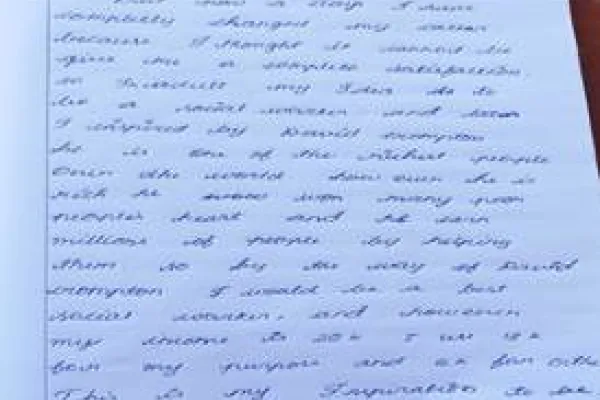 completely changed my career
because I thought it cannot be
give me a complete satisfaction.
so my Idea is to
be a social worker and
I inspired by David
he is one of the richest people
over the world how ever he is
rich he won many poor
people's heart and he earn
millions of people by helping
them so by the way of David
I would be a best
social worker, and however
my income is 20k I use
for my purpose and for
This is my Inspiration to be